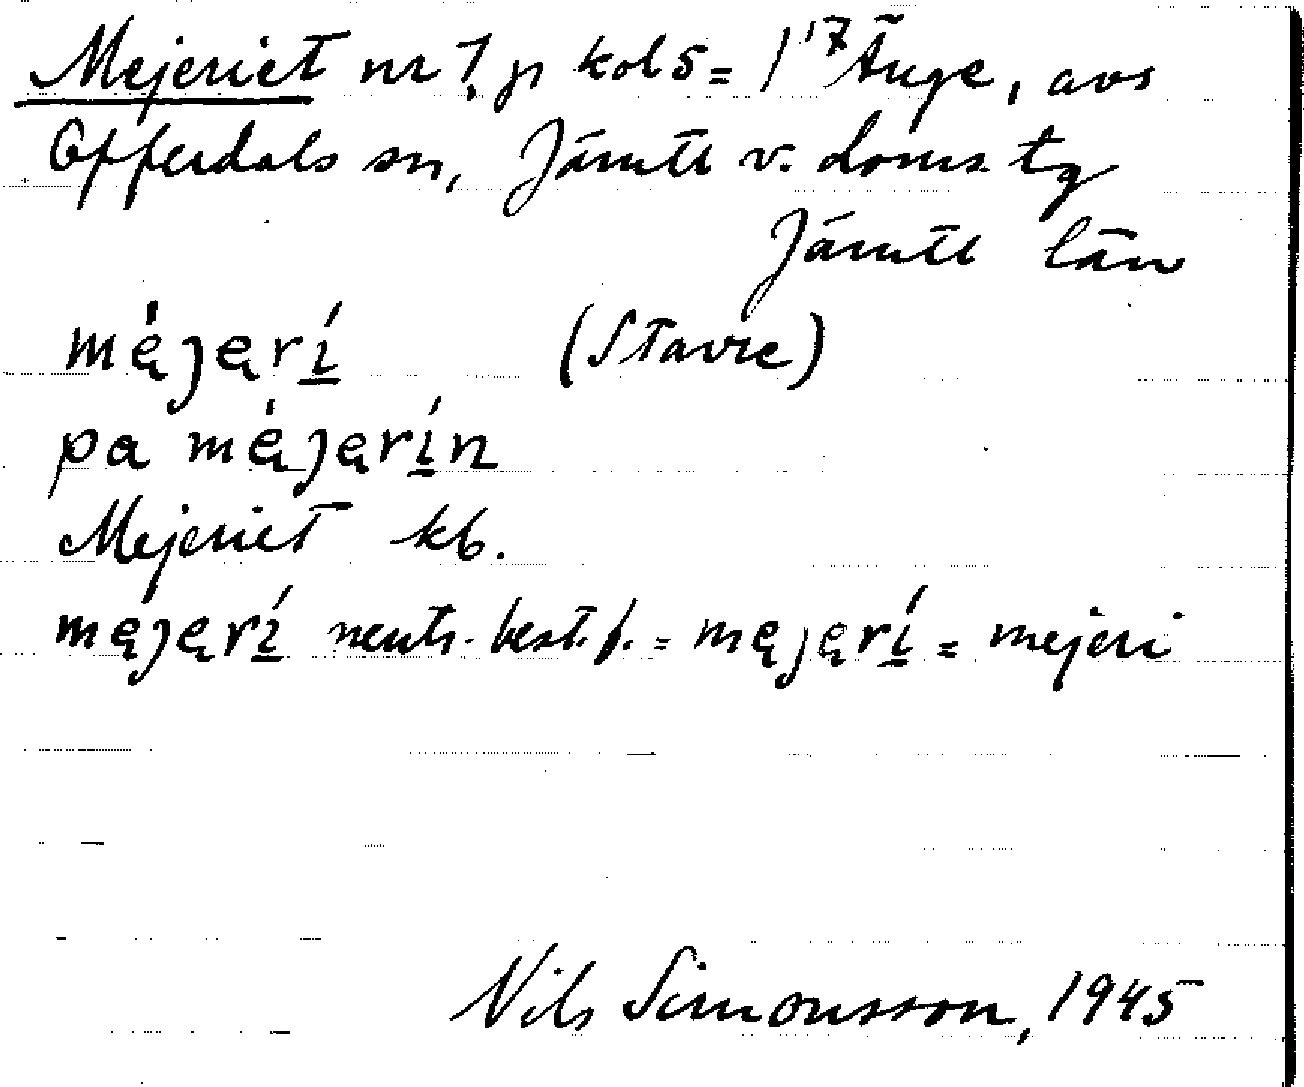 Mejeriet nr 7, p kol 5 = 1¹⁷ Änge, avs
Offerdals sn, Jämtl v. doms. tg
Jämtl län
mę́ję̀rí̲ (Stavre)
pa mę́ję̀rí̲n
Mejeriet kb.
męjęrí̲ neutr. best. f. = męjęrí̲ = mejeri
Nils Simonsson, 1945